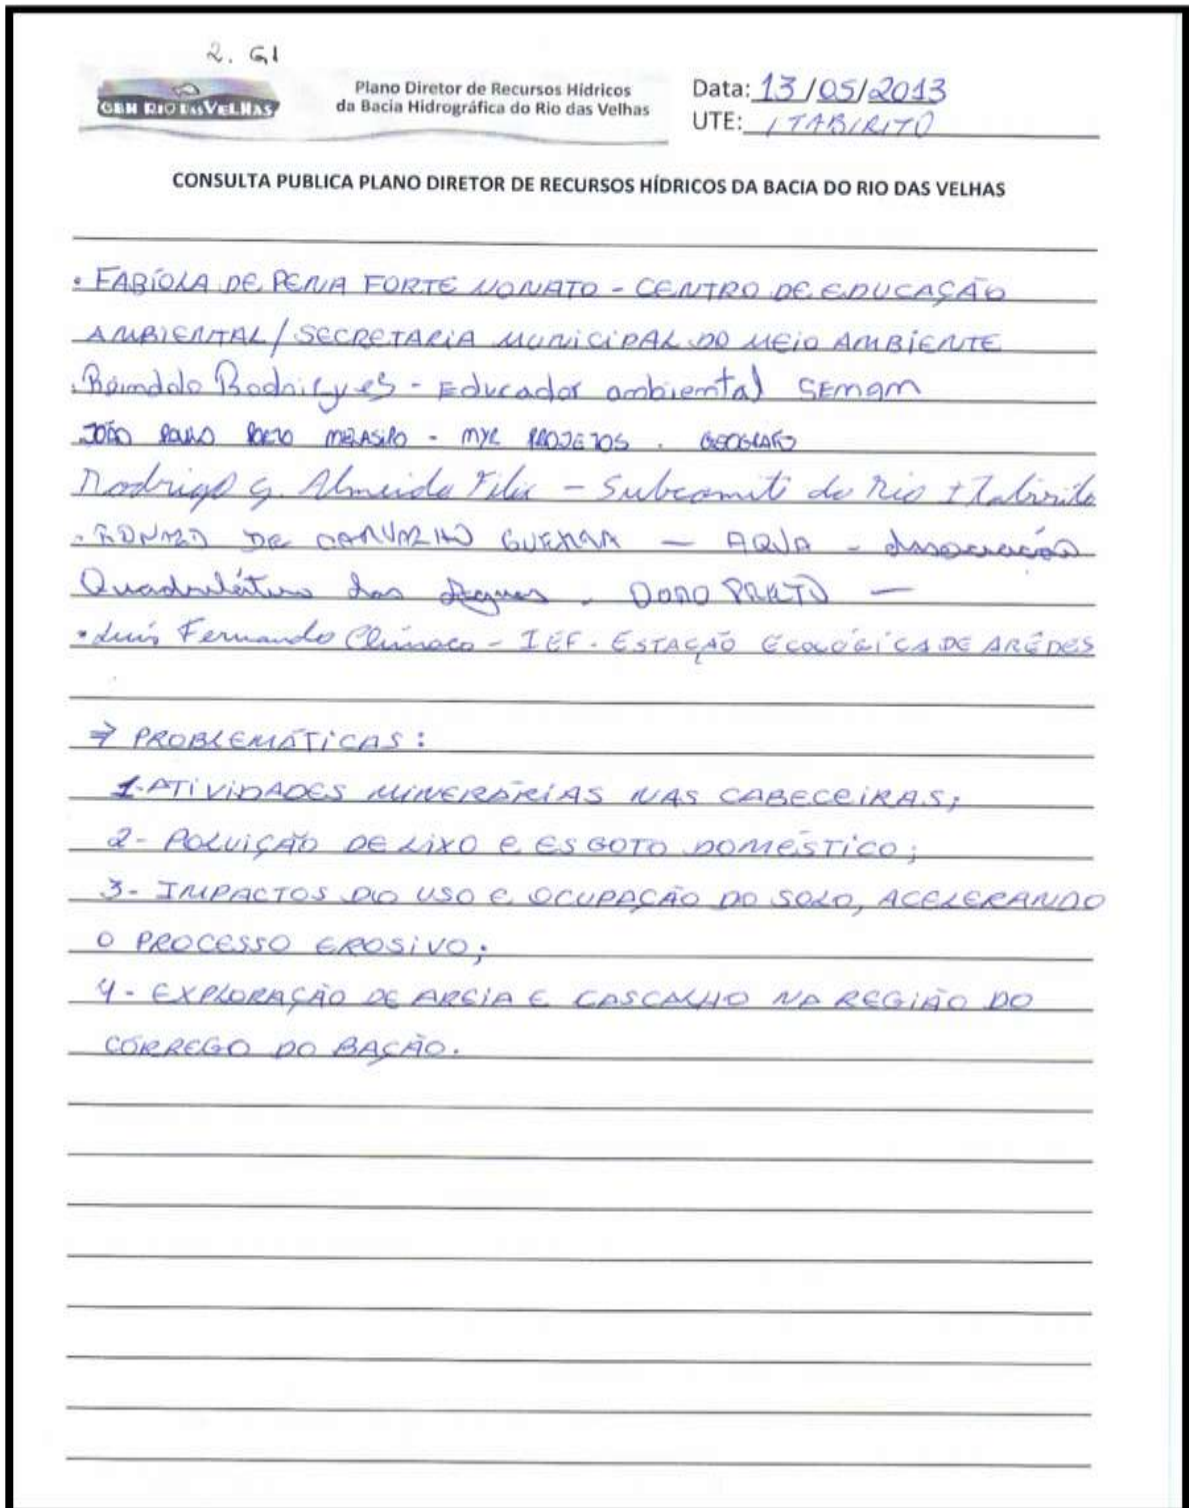 2. G1
CBH RIO DAS VELHAS
Plano Diretor de Recursos Hídricos
da Bacia Hidrográfica do Rio das Velhas
Data: 13/05/2013
UTE: ITABIRITO
CONSULTA PUBLICA PLANO DIRETOR DE RECURSOS HÍDRICOS DA BACIA DO RIO DAS VELHAS
• FABÍOLA DE PENA FORTE NONATO - CENTRO DE EDUCAÇÃO
AMBIENTAL/SECRETARIA MUNICIPAL DO MEIO AMBIENTE
Rodrigues - Educador ambiental SEMAM
JOÃO PAULO - MYR PROJETOS . GEOGRAFO
Rodrigo G. Almeida - Subcomitê do Rio Itabirito
. DE CARVALHO GUERRA — AQUA - Associação
Quadrilátero das Águas . OURO PRETO —
• Luís Fernando Clímaco - IEF. ESTAÇÃO ECOLÓGICA DE ARÊDES
⇒ PROBLEMÁTICAS:
1-ATIVIDADES MINERÁRIAS NAS CABECEIRAS;
2- POLUIÇÃO DE LIXO E ESGOTO DOMÉSTICO;
3- IMPACTOS DO USO E OCUPAÇÃO DO SOLO, ACELERANDO
O PROCESSO EROSIVO;
4- EXPLORAÇÃO DE AREIA E CASCALHO NA REGIÃO DO
CÓRREGO DO BAÇÃO.